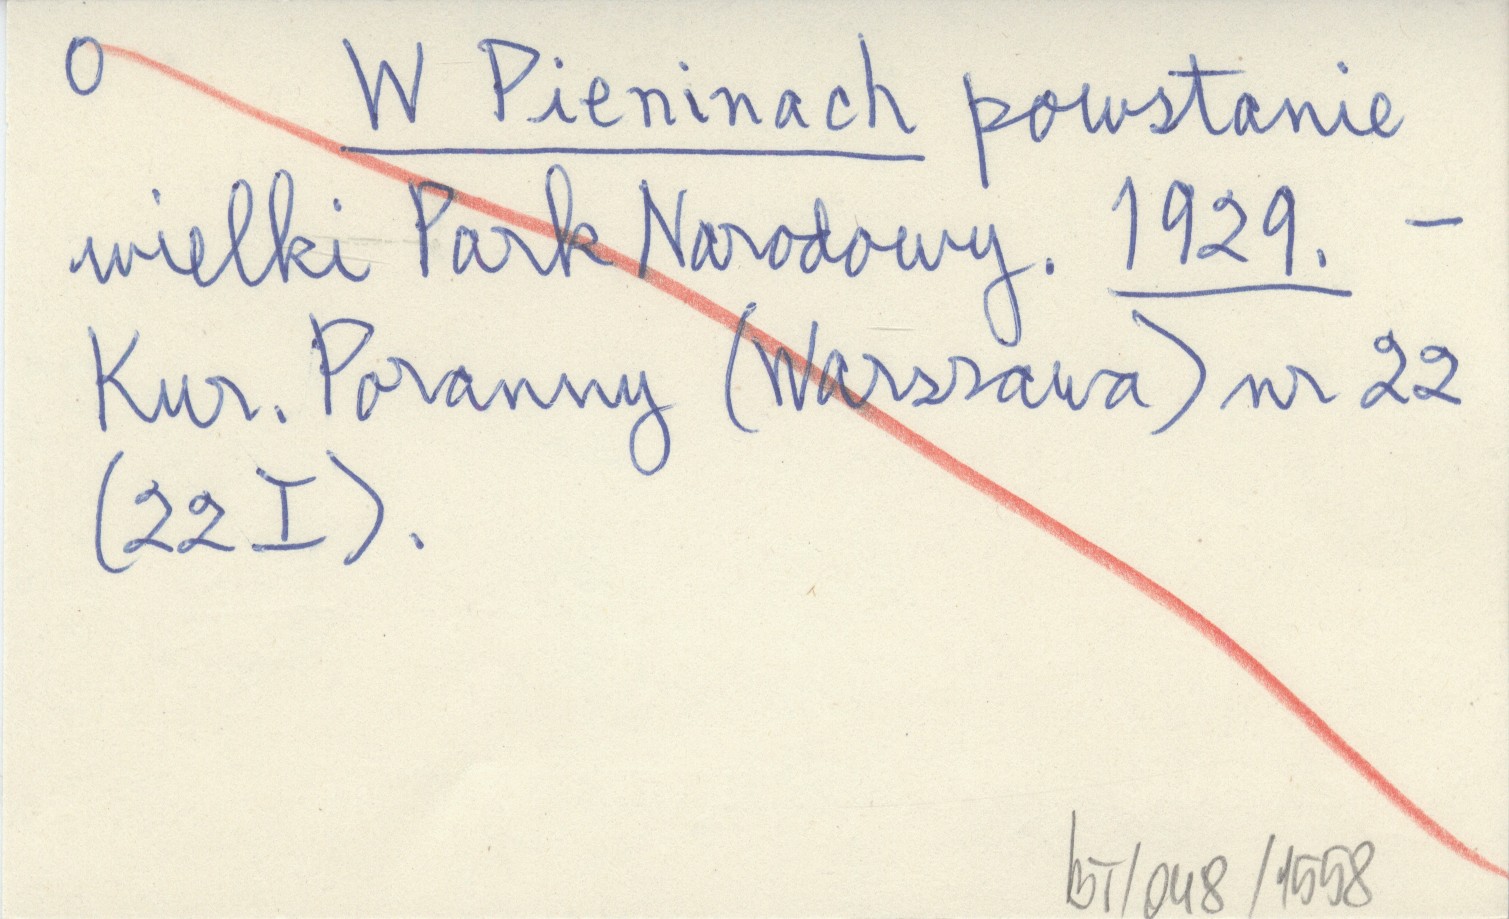 O W Pieninach powstanie
wielki Park Narodowy. 1929. –
Kur. Poranny (Warszawa) nr 22
(22 I).
bT/048/1558